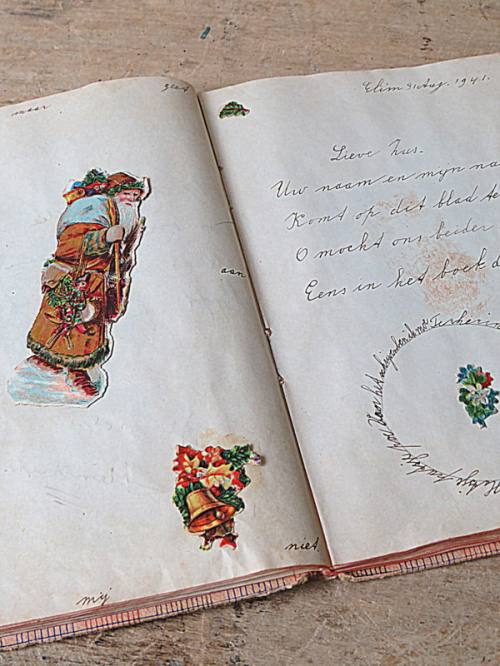 maar
aan
niet
mij
Elim 31 Aug. 1941.
Lieve Zus.
Uw naam en mijn na
Komt op dit blad te
O mocht ons beider
Eens in het boek d
Ter herin